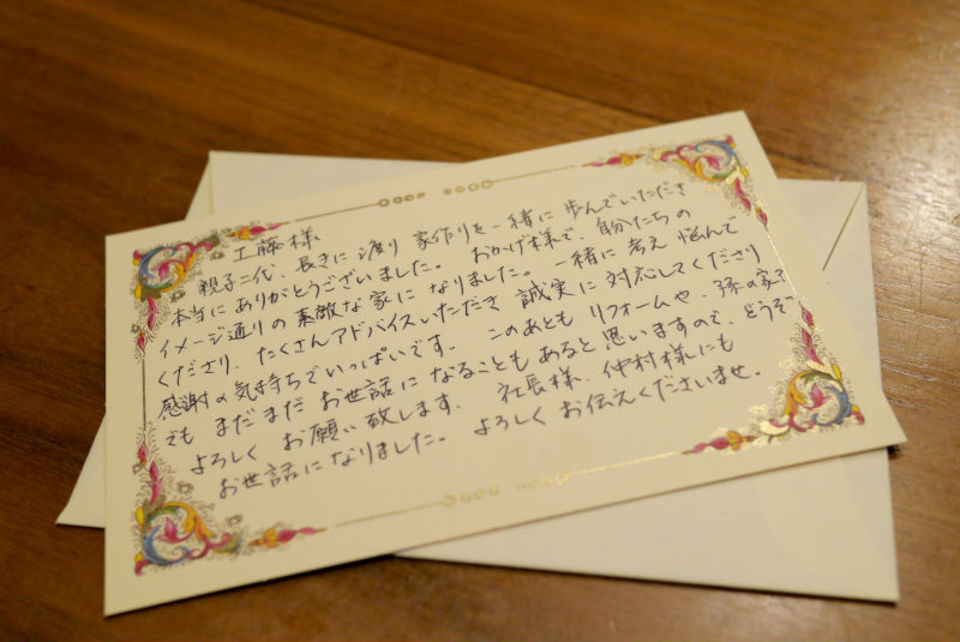 工藤様
親子二代、長きに渡り 家作りを一緒に 歩んでいただき
本当にありがとうございました。 おかげ様で、自分たちの
イメージ通りの 素敵な家に なりました。一緒に 考え 悩んで
くださり、たくさんアドバイスいただき 誠実に 対応してくださり
感謝の気持ちでいっぱいです。 このあとも リフォームや、孫の家で
でも まだまだ お世話に なることも あると 思いますので、どうぞ
よろしく お願い致します。 社長様、仲村様にも
お世話になりました。 よろしく お伝えくださいませ。